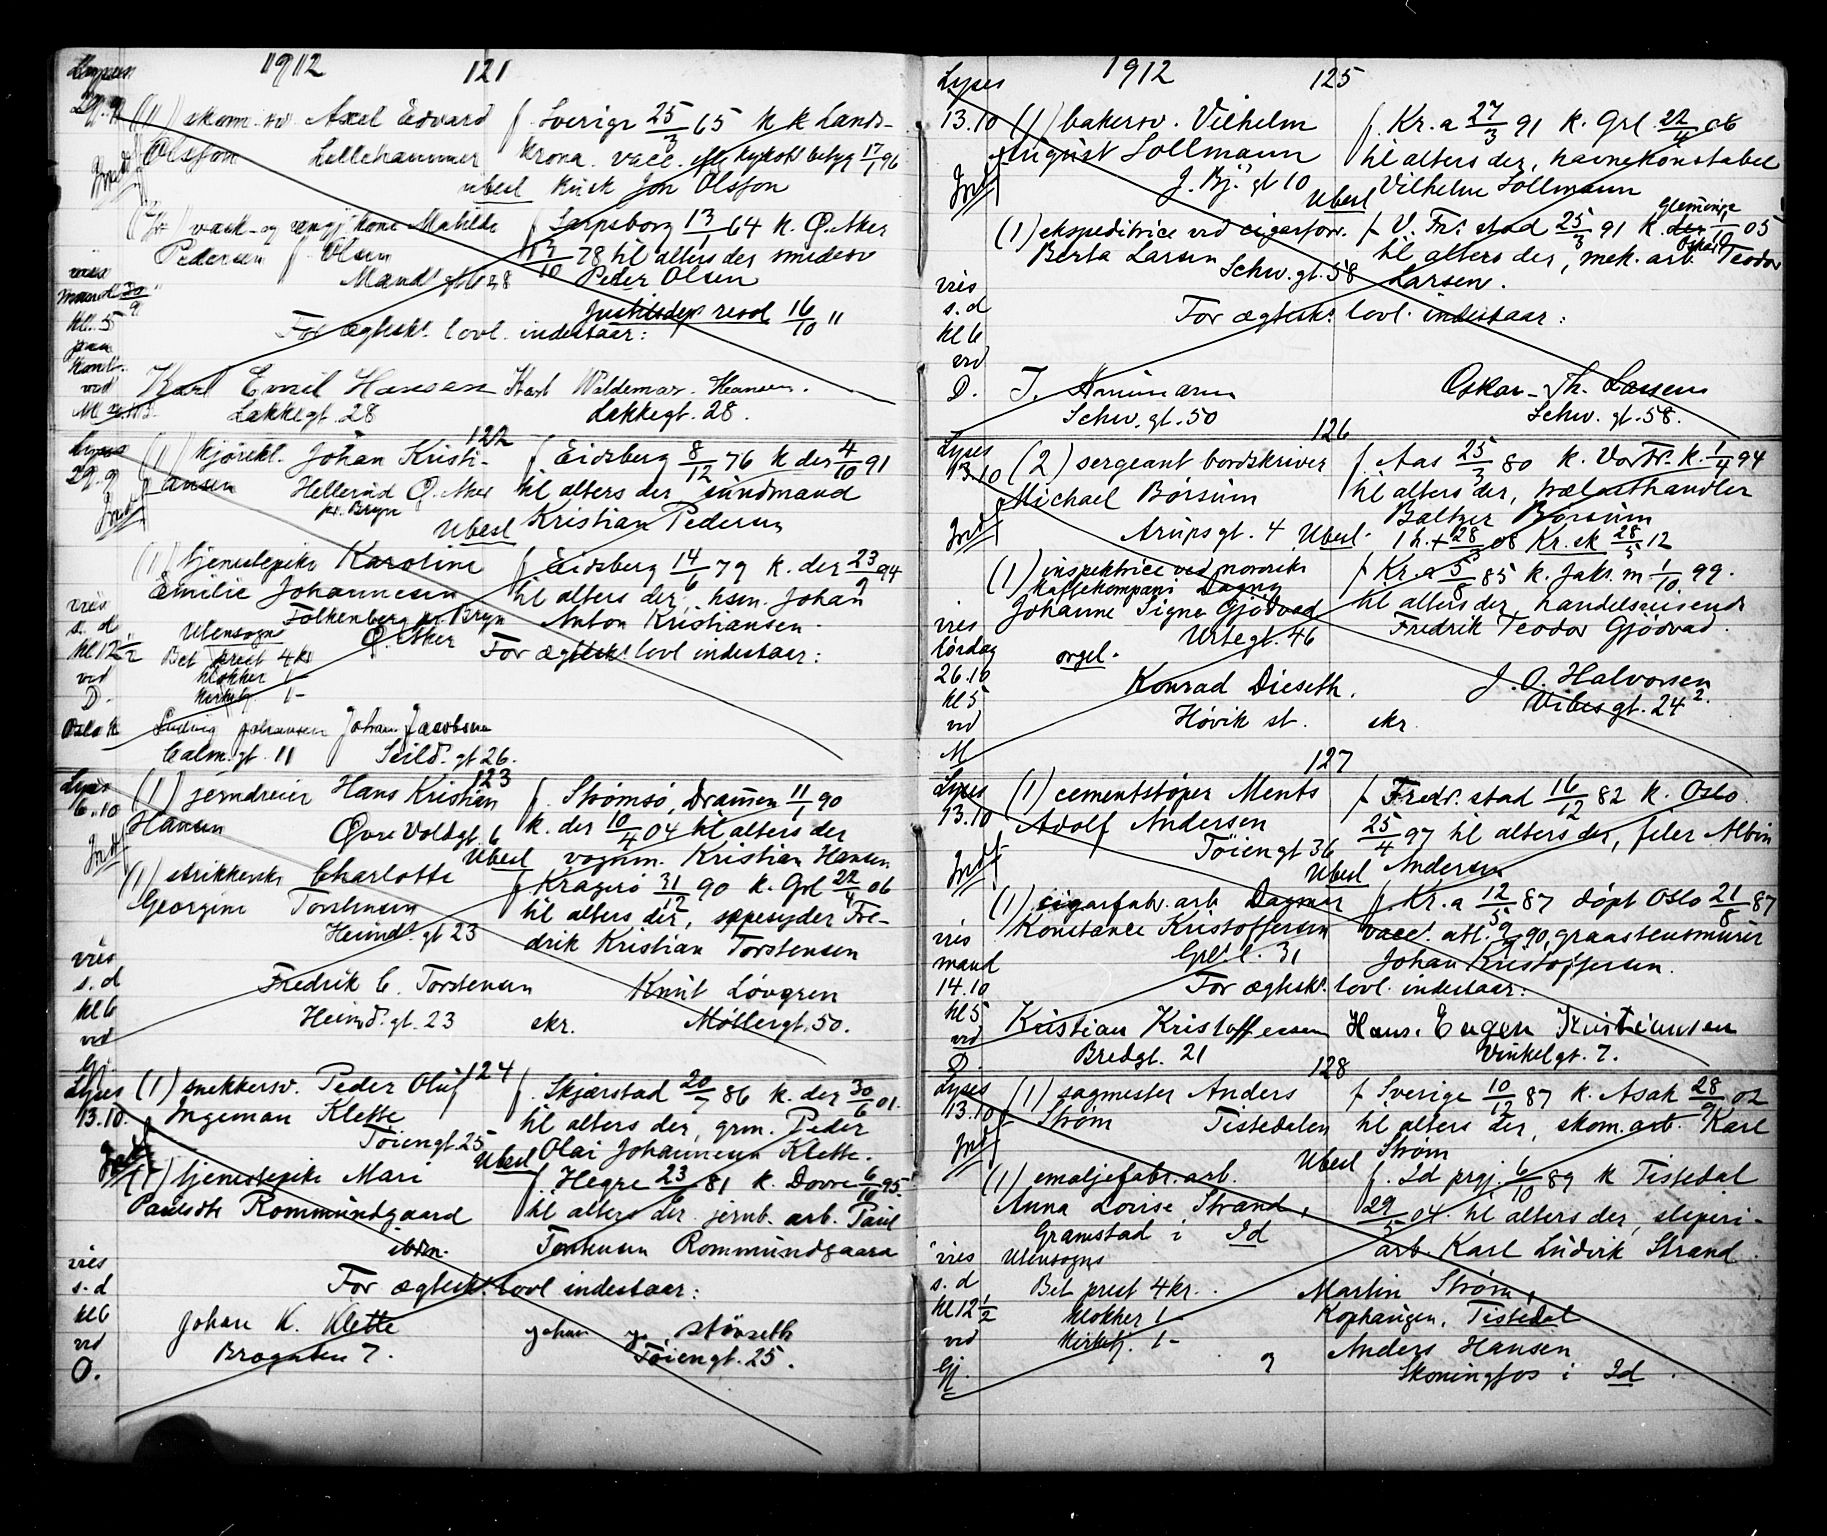 1912 121
Lyses
29.9 (1) skom. sv. Axel Edvard f. Sverige 25/3 65 k k Lands-
Olsson Lillehammer krona. vacc. eflg kykoh betyg 17/1 96
Ubesl Kusk Jon Olsson
vask- og rengj. kone Matilde f Sarpsborg 13/1 64 k. Ø. Aker
Pedersen f. Olsen 13/10 78 til alters der smedesv
Mand. gt 28 Peder Olsen
vies
mand 30/9
kl. 5
paa
kont.
ved
M
Justitsdep resol 16/10 "
For ægtesk. lovl. indestaar:
Karl Emil Hansen Karl Waldemar Hansen.
Lakkegt. 28 Lakkegt. 28.
122
Lyses
29.9 (1) kjørekl. Johan Kristi- f. Eidsberg 8/12 76 k der 4/10 91
ansen Hellerud Ø. Aker til alters der sundmand
pr. Bryn Ubesl Kristian Pedersen
(1) tjenestepike Karoline f Eidsberg 14/6 79 k. der 23/9 94
Emilie Johannesen til alters der, hsm. Johan
Folkenberg pr. Bryn Anton Kristiansen.
Ø. Aker
vies
s. d
kl 12 1/2
ved
D.
Oslo k
Utensogns
Bet prest 4 kr
klokker 1 -
kirketj. 1 -
For ægtesk. lovl indestaar:
Ludvig Johansen Johan Jacobsen
Calm. gt. 11 Seild. gt 26.
123
Lyses
6.10 (1) jerndreier Hans Kristian f. Strømsø, Drammen 11/1 90
Hansen Øvre Voldgt. 6 k. der 10/4 04 til alters der
Ubesl vognm. Kristian Hansen
(1) strikkersk Charlotte f Kragerø 31/12 90 k. Grl 22/4 06
Georgine Torstensen til alters der, sæpesyder Fre-
Heimd. gt 23 drik Kristian Torstensen
vies
s. d
kl 6
ved
Gj.
Fredrik C. Torstensen Knut Løvgren
Heimd. gt. 23 skr. Møllergt. 50.
124
Lyses (1) snekkersv. Peder Oluf f. Skjærstad 20/7 86 k. der 30/6 01.
13.10. Ingeman Klette til alters der, grm. Peder
Tøiengt. 25 Olai Johannesen Klette.
Ubesl
(1) tjenestepike Mari f. Hegre 23/6 81 k. Dovre 6/10 95.
Paulsdtr Rommundgaard til alters der jernb. arb. Paul
ibdm. Torstensen Rommundgaard
vies
s. d
kl 6
ved
O.
For ægtesk. lovl indestaar:
Johan K. Klette Johan Støvseth
Brogaten 7. Tøiengt. 25.
1912 125
Lyses
13.10 (1) bakersv. Vilhelm f. Kr.a 27/3 91 k. Grl. 22/4 06
August Sollmann til alters der, havnekonstabel
J. Bj. gt 10 Ubesl Vilhelm Sollmann
(1) ekspeditrice ved cigarforr. f V. Fr. stad 25/3 91 k. der Glemminge 05
Berta Larsen til alters der, mek. arb. Oskar Teodor
Schw. gt. 58 Larsen.
vies
s. d
kl 6
ved
D.
For ægtesk. lovl. indestaar:
T. Ammann Oskar Th. Larsen
Schw. gt. 50 Schw. gt. 58.
126
Lyses
13.10 (2) sergeant bordskriver f. Aas 25/3 80 k. Vor Fr. k. 1/4 94
Michael Børsum til alters der, trælasthandler
Baltzer Børsum
Arups gt. 4 Ubesl. 1 h. + 28/3 08 Kr. sk 28/5 12
(1) inspektrice ved norsk f Kr.a 5/8 85 k. Jak. m 1/10 99.
kaffekompani Dagny
Johanne Signe Gjødvad til alters der, handelsreisende
Urtegt. 46 Fredrik Teodor Gjødvad.
vies
lørdag
26.10
kl 5
ved
M
orgel.
Konrad Dieseth. J. O. Halvorsen
Høvik st. skr. Vibes gt. 24 2.
127
Lyses (1) cementstøper Ments f Fredr. stad 16/12 82 k. Oslo
13.10 Adolf Andersen 25/4 97 til alters der, feier Albin
Tøiengt 36 Ubesl Andersen
(1) cigarfabr. arb Dagmar f. Kr.a 12/5 87 døpt Oslo 21/8 87
Konstance Kristoffersen vacc. att. 9/5 90, graastensmurer
Grl. l. 31 Johan Kristoffersen.
vies
mand
14.10
kl 5
ved
D.
For ægtesk. lovl. indestaar:
Kristian Kristoffersen Hans. Eugen Kristiansen
Bredgt. 21 Vinkelgt. 7.
128
Lyses (1) sagmester Anders f Sverige 10/12 87 k. Asak 28/9 02
13.10 Strøm Tistedalen til alters der, skom. arb. Karl
Ubesl Strøm
(1) emaljefabr. arb. f. Id prgj. 6/10 89 k Tistedal
Anna Lovise Strand, 29/5 04. til alters der, sliperi-
Gramstad i Id arb. Karl Ludvik Strand.
vies
s. d
kl 12 1/2
ved
Gj.
Utensogns
Bet prest 4 kr.
klokker 1 -
kirketj. 1 -
Martin Strøm,
Kophaugen, Tistedal
Anders Hansen
Skoningsfos i Id.